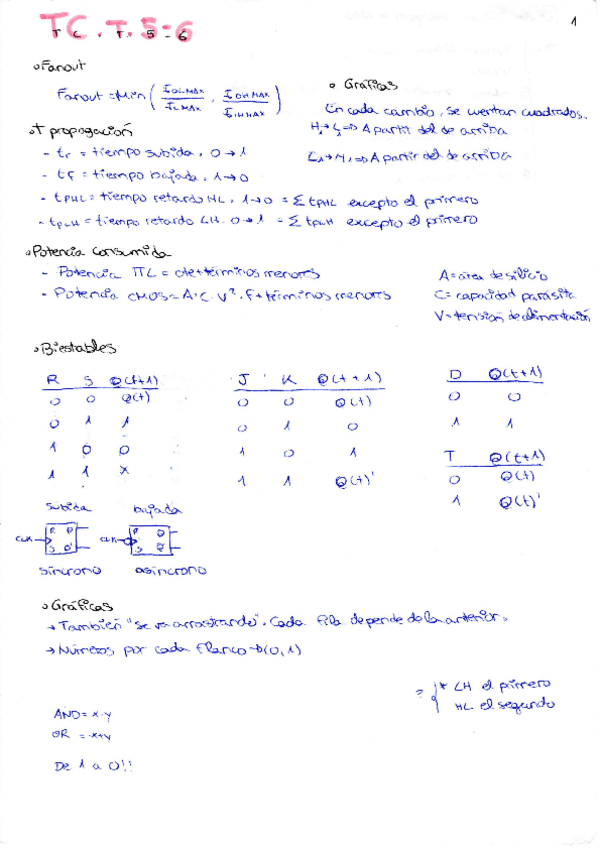 TC. T. 5-6
T C . T . 5 - 6
1
Fanout
Fanout = Min ( IOL MAX / IIL MAX , IOH MAX / IIH MAX )
T propagación
- tr = tiempo subida, 0 → 1
- tf = tiempo bajada, 1 → 0
- tPHL = tiempo retardo HL, 1 → 0 = Σ tPHL excepto el primero
- tPLH = tiempo retardo LH. 0 → 1 = Σ tPLH excepto el primero
Gráficas
En cada cambio, se cuentan cuadrados.
H → L => A partir del de arriba
L → H => A partir del de arriba
Potencia Consumida
- Potencia TTL = cte + términos menores
- Potencia CMOS = A·C·V²·F + términos menores
A = área de silicio
C = capacidad parásita
V = tensión de alimentación
Biestables
R S Q(t+1)
0 0 Q(t)
0 1 1
1 0 0
1 1 x
J K Q(t+1)
0 0 Q(t)
0 1 0
1 0 1
1 1 Q(t)'
D Q(t+1)
0 0
1 1
T Q(t+1)
0 Q(t)
1 Q(t)'
subida bajada
CLK R Q S Q' CLK R Q S Q'
síncrono asíncrono
Gráficas
→ También "se va arrastrando". Cada fila depende de la anterior.
→ Números por cada flanco → (0,1)
? { * LH el primero
HL. el segundo
AND = x·y
OR = x+y
De 1 a 0!!